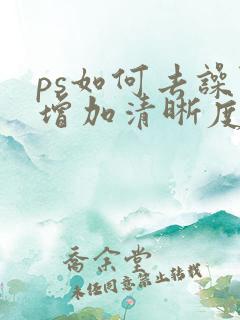 ps如何去譟
增加清晰度
喬余堂
未经同意禁止转载